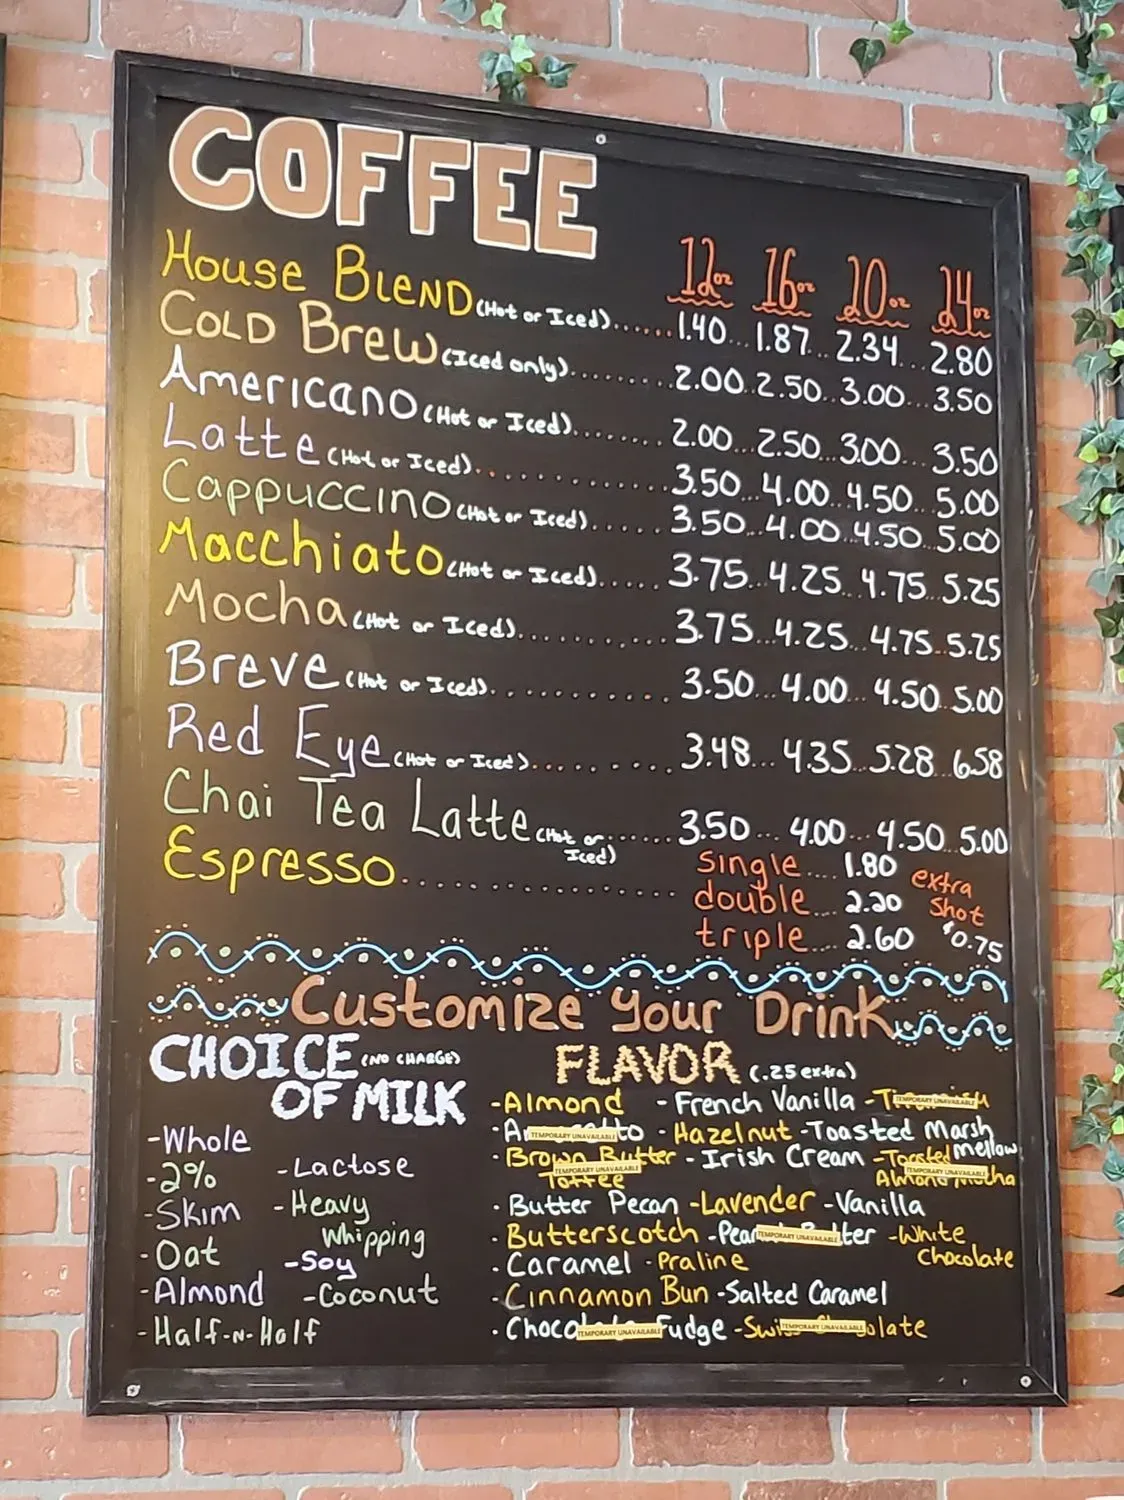 COFFEE
12oz 16oz 20oz 24oz
House Blend (Hot or Iced)......1.40...1.87...2.34...2.80
Cold Brew (Iced only).........2.00..2.50..3.00...3.50
Americano (Hot or Iced)........2.00...2.50..3.00...3.50
Latte (Hot or Iced)..............3.50...4.00..4.50...5.00
Cappuccino (Hot or Iced).....3.50...4.00...4.50...5.00
Macchiato (Hot or Iced).....3.75...4.25...4.75...5.25
Mocha (Hot or Iced)..........3.75...4.25...4.75...5.25
Breve (Hot or Iced)...........3.50...4.00...4.50..5.00
Red Eye (Hot or Iced).........3.48...4.35...5.28...6.58
Chai Tea Latte (Hot or Iced)......3.50....4.00...4.50..5.00
Espresso..................single....1.80
double....2.20
triple....2.60
extra
shot
$0.75
Customize Your Drink
CHOICE (NO CHARGE)
OF MILK
-Whole
-2% -Lactose
-Skim -Heavy
Whipping
-Oat -Soy
-Almond -Coconut
-Half-N-Half
FLAVOR (.25 extra)
-Almond -French Vanilla TEMPORARY UNAVAILABLE
TEMPORARY UNAVAILABLE -Hazelnut -Toasted Marsh
mellow
·Brown Butter -Irish Cream -Toasted
Toffee TEMPORARY UNAVAILABLE Almond Mocha TEMPORARY UNAVAILABLE
·Butter Pecan -Lavender -Vanilla
·Butterscotch -Peanut Butter TEMPORARY UNAVAILABLE -White
Chocolate
·Caramel -Praline
·Cinnamon Bun -Salted Caramel
·Chocolate Fudge TEMPORARY UNAVAILABLE -Swiss Chocolate TEMPORARY UNAVAILABLE